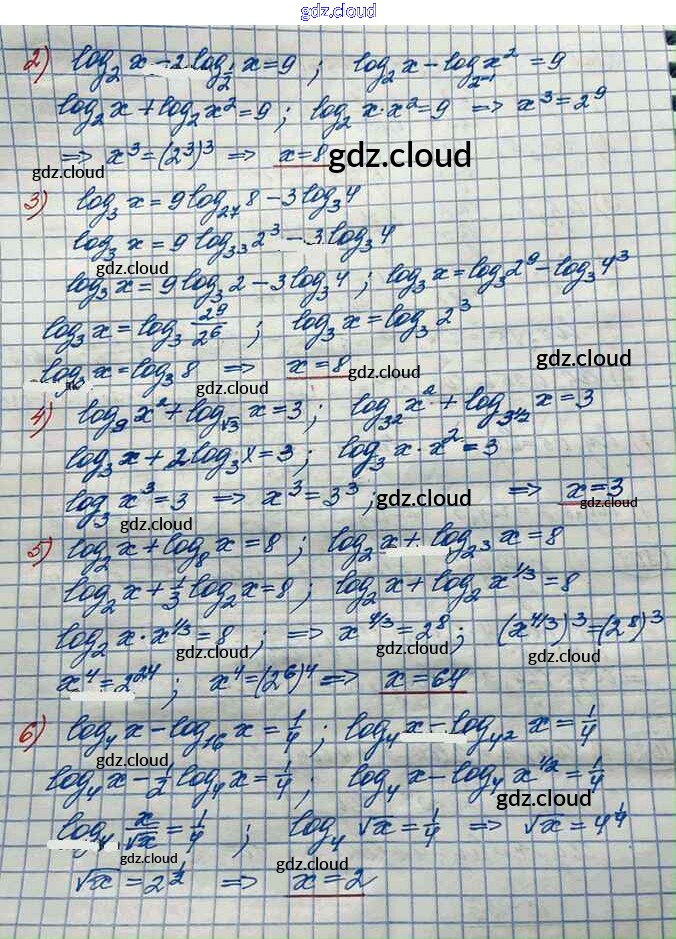 gdz.cloud
2) log₂ x − 2 log_{1/2} x = 9 ; log₂ x − log_{2⁻¹} x² = 9
log₂ x + log₂ x² = 9 ; log₂ x · x² = 9 ⇒ x³ = 2⁹
⇒ x³ = (2³)³ ⇒ x = 8 gdz.cloud
gdz.cloud
3) log₃ x = 9 log₂₇ 8 − 3 log₃ 4
log₃ x = 9 log_{3³} 2³ − 3 log₃ 4
gdz.cloud gdz.cloud
log₃ x = 9 log₃ 2 − 3 log₃ 4 ; log₃ x = log₃ 2⁹ − log₃ 4³
log₃ x = log₃ 2⁹/2⁶ ; log₃ x = log₃ 2³
log₃ x = log₃ 8 ⇒ x = 8 gdz.cloud
gdz.cloud gdz.cloud
4) log₉ x² + log_{√3} x = 3 ; log_{3²} x² + log_{3^{1/2}} x = 3
log₃ x + 2 log₃ x = 3 ; log₃ x · x² = 3
log₃ x³ = 3 ⇒ x³ = 3³ ; gdz.cloud ⇒ x = 3
gdz.cloud gdz.cloud
5) log₂ x + log₈ x = 8 ; log₂ x + log_{2³} x = 8
log₂ x + 1/3 log₂ x = 8 ; log₂ x + log₂ x^{1/3} = 8
log₂ x · x^{1/3} = 8 ; ⇒ x^{4/3} = 2⁸ ; (x^{4/3})³ = (2⁸)³
gdz.cloud gdz.cloud
x⁴ = 2²⁴ ; x⁴ = (2⁶)⁴ ⇒ x = 64
6) log₄ x − log₁₆ x = 1/4 ; log₄ x − log_{4²} x = 1/4
gdz.cloud gdz.cloud
log₄ x − 1/2 log₄ x = 1/4 ; log₄ x − log₄ x^{1/2} = 1/4
log₄ x/√x = 1/4 ; log₄ √x = 1/4 ⇒ √x = 4^{1/4}
gdz.cloud gdz.cloud
√x = 2^{1/2} ⇒ x = 2